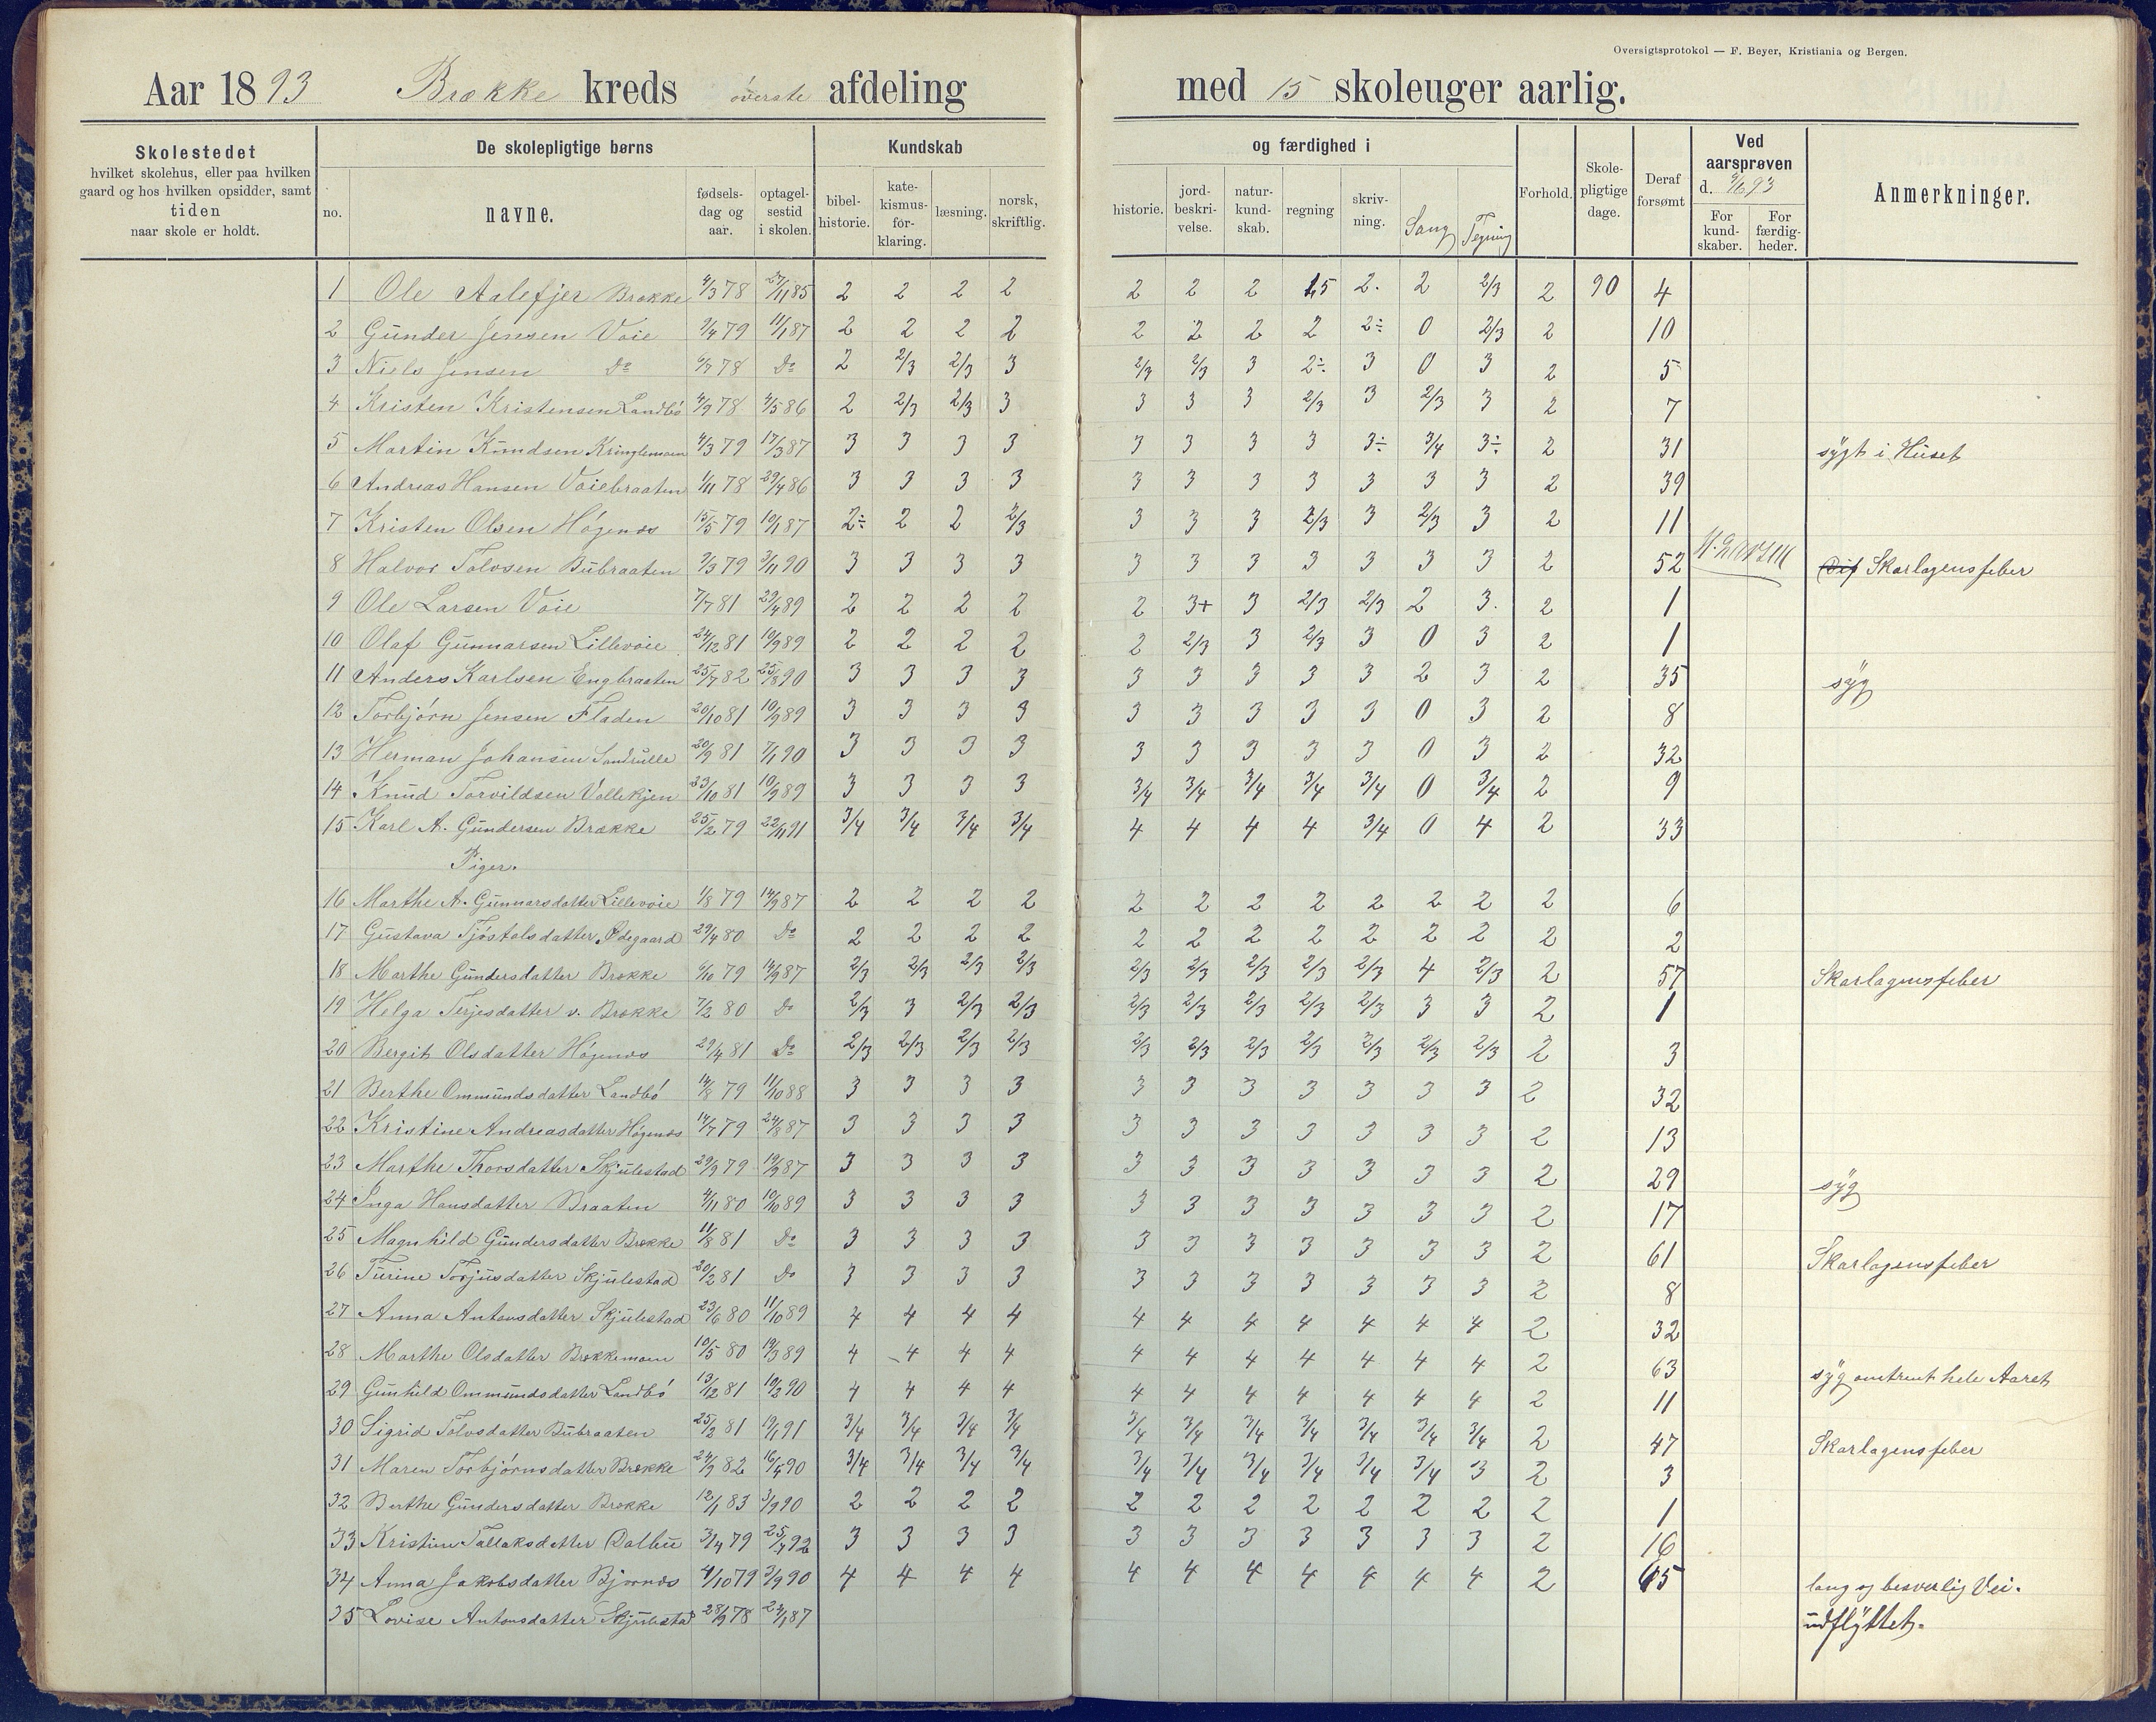 Oversigtsprotokol — F. Beyer, Kristiania og Bergen.
Aar 1893 Brække kreds överste afdeling med 15 skoleuger aarlig.
Skolestedet hvilket skolehus, eller paa hvilken gaard og hos hvilken opsidder, samt tiden naar skole er holdt.
De skolepligtige børns
no. navne. fødsels-dag og aar. optagel-sestid i skolen.
Kundskab og færdighed i
bibel-historie. kate-kismus-for-klaring. læsning. norsk, skriftlig. historie. jord-beskri-velse. natur-kund-skab. regning skriv-ning. Sang Tegning
Forhold. Skole-pligtige dage. Deraf forsømt
Ved aarsprøven d. 9/6 93
For kund-skaber. For færdig-heder.
Anmerkninger.
1 Ole Aalefjer Brække 4/3 78 27/11 85 2 2 2 2 2 2 2 1,5 2. 2 2/3 2 90 4
2 Gunder Jensen Voie 9/4 79 11/1 87 2 2 2 2 2 2 2 2 2÷ 0 2/3 2 10
3 Niels Jensen Do 6/7 78 Do 2 2/3 2/3 3 2/3 2/3 3 2÷ 3 0 3 2 5
4 Kristen Kristensen Landbö 4/9 78 4/5 86 2 2/3 2/3 3 3 3 3 2/3 3 2/3 3 2 7
5 Martin Knudsen Kringlemoen 4/3 79 17/3 87 3 3 3 3 3 3 3 3 3÷ 3/4 3÷ 2 31 sygt i Huset
6 Andreas Hansen Voiebraaten 1/11 78 29/4 86 3 3 3 3 3 3 3 3 3 3 3 2 39
7 Kristen Olsen Högenæs 15/5 79 10/1 87 2÷ 2 2 2/3 3 3 3 2/3 3 2/3 3 2 11
8 Halvor Tolvsen Bubraaten 9/3 79 3/11 90 3 3 3 3 3 3 3 3 3 3 3 2 52 Skarlagensfeber
9 Ole Larsen Voie 7/7 81 29/4 89 2 2 2 2 2 3+ 3 2/3 2/3 2 3. 2 1
10 Olaf Gunnarsen Lillevoie 24/12 81 10/9 89 2 2 2 2 2 2/3 3 2/3 3 0 3 2 1
11 Anders Karlsen Engbraaten 25/7 82 25/8 90 3 3 3 3 3 3 3 3 3 2 3 2 35 syg
12 Torbjörn Jensen Fladen 20/10 81 10/9 89 3 3 3 3 3 3 3 3 3 0 3 2 8
13 Herman Johansen Sandrulle 20/9 81 7/1 90 3 3 3 3 3 3 3 3 3 0 3 2 32
14 Knud Torvildsen Vallekjen 23/10 81 10/9 89 3 3 3 3 3/4 3/4 3/4 3/4 3/4 0 3/4 2 9
15 Karl A. Gundersen Brække 25/2 79 22/1 91 3/4 3/4 3/4 3/4 4 4 4 4 3/4 0 4 2 33
Piger.
16 Marthe A. Gunnarsdatter Lillevoie 1/8 79 14/9 87 2 2 2 2 2 2 2 2 2 2 2 2 6
17 Gustava Tjöstolsdatter Ødegaard 29/4 80 Do 2 2 2 2 2 2 2 2 2 2 2 2 2
18 Marthe Gundersdatter Brække 6/10 79 14/9 87 2/3 2/3 2/3 2/3 2/3 2/3 2/3 2/3 2/3 4 2/3 2 57 Skarlagensfeber
19 Helga Terjesdatter v. Brække 7/2 80 Do 2/3 3 2/3 2/3 2/3 2/3 2/3 2/3 2/3 3 3 2 1
20 Bergit Olsdatter Högenæs 29/4 81 Do 2/3 2/3 2/3 2/3 2/3 2/3 2/3 2/3 2/3 2/3 2/3 2 3
21 Berthe Ommundsdatter Landbö 14/8 79 11/10 88 3 3 3 3 3 3 3 3 3 3 3 2 32
22 Kristine Andreasdatter Högenæs 14/7 79 24/8 87 3 3 3 3 3 3 3 3 3 3 3 2 13
23 Marthe Thorsdatter Skjulestad 29/9 79 19/9 87 3 3 3 3 3 3 3 3 3 3 3 2 29 syg
24 Inga Hansdatter Braaten 4/11 80 10/10 89 3 3 3 3 3 3 3 3 3 3 3 2 17
25 Magnhild Gundersdatter Brække 11/8 81 Do 3 3 3 3 3 3 3 3 3 3 3 2 61 Skarlagensfeber
26 Turine Torjusdatter Skjulestad 20/2 81 Do 3 3 3 3 3 3 3 3 3 3 3 2 8
27 Anna Antonsdatter Skjulestad 23/6 80 11/10 89 4 4 4 4 4 4 4 4 4 4 4 2 32
28 Marthe Olsdatter Brækkemoen 10/5 80 19/3 89 4 4 4 4 4 4 4 4 4 4 4 2 63 syg omtrent hele Aaret
29 Gunhild Ommundsdatter Landbö 13/12 81 19/2 90 4 4 4 4 4 4 4 4 4 4 4 2 11
30 Sigrid Tolvsdatter Bubraaten 25/2 81 19/1 91 3/4 3/4 3/4 3/4 3/4 3/4 3/4 3/4 3/4 3/4 3/4 2 47 Skarlagensfeber
31 Maren Torbjörnsdatter Brække 24/9 82 16/4 90 3/4 3/4 3/4 3/4 3/4 3/4 3/4 3/4 3/4 3/4 3 2 3
32 Berthe Gundersdatter Brække 12/1 83 3/9 90 2 2 2 2 2 2 2 2 2 2 2 2 1
33 Kristine Tallaksdatter Dalbu 3/4 79 25/4 92 3 3 3 3 3 3 3 3 3 3 3 2 16
34 Anna Jakobsdatter Bjornæs 4/10 79 3/9 90 4 4 4 4 4 4 4 4 4 4 4 2 65 lang og besverlig Vei.
35 Lovise Antonsdatter Skjulestad 28/9 78 24/1 87 udflyttet.